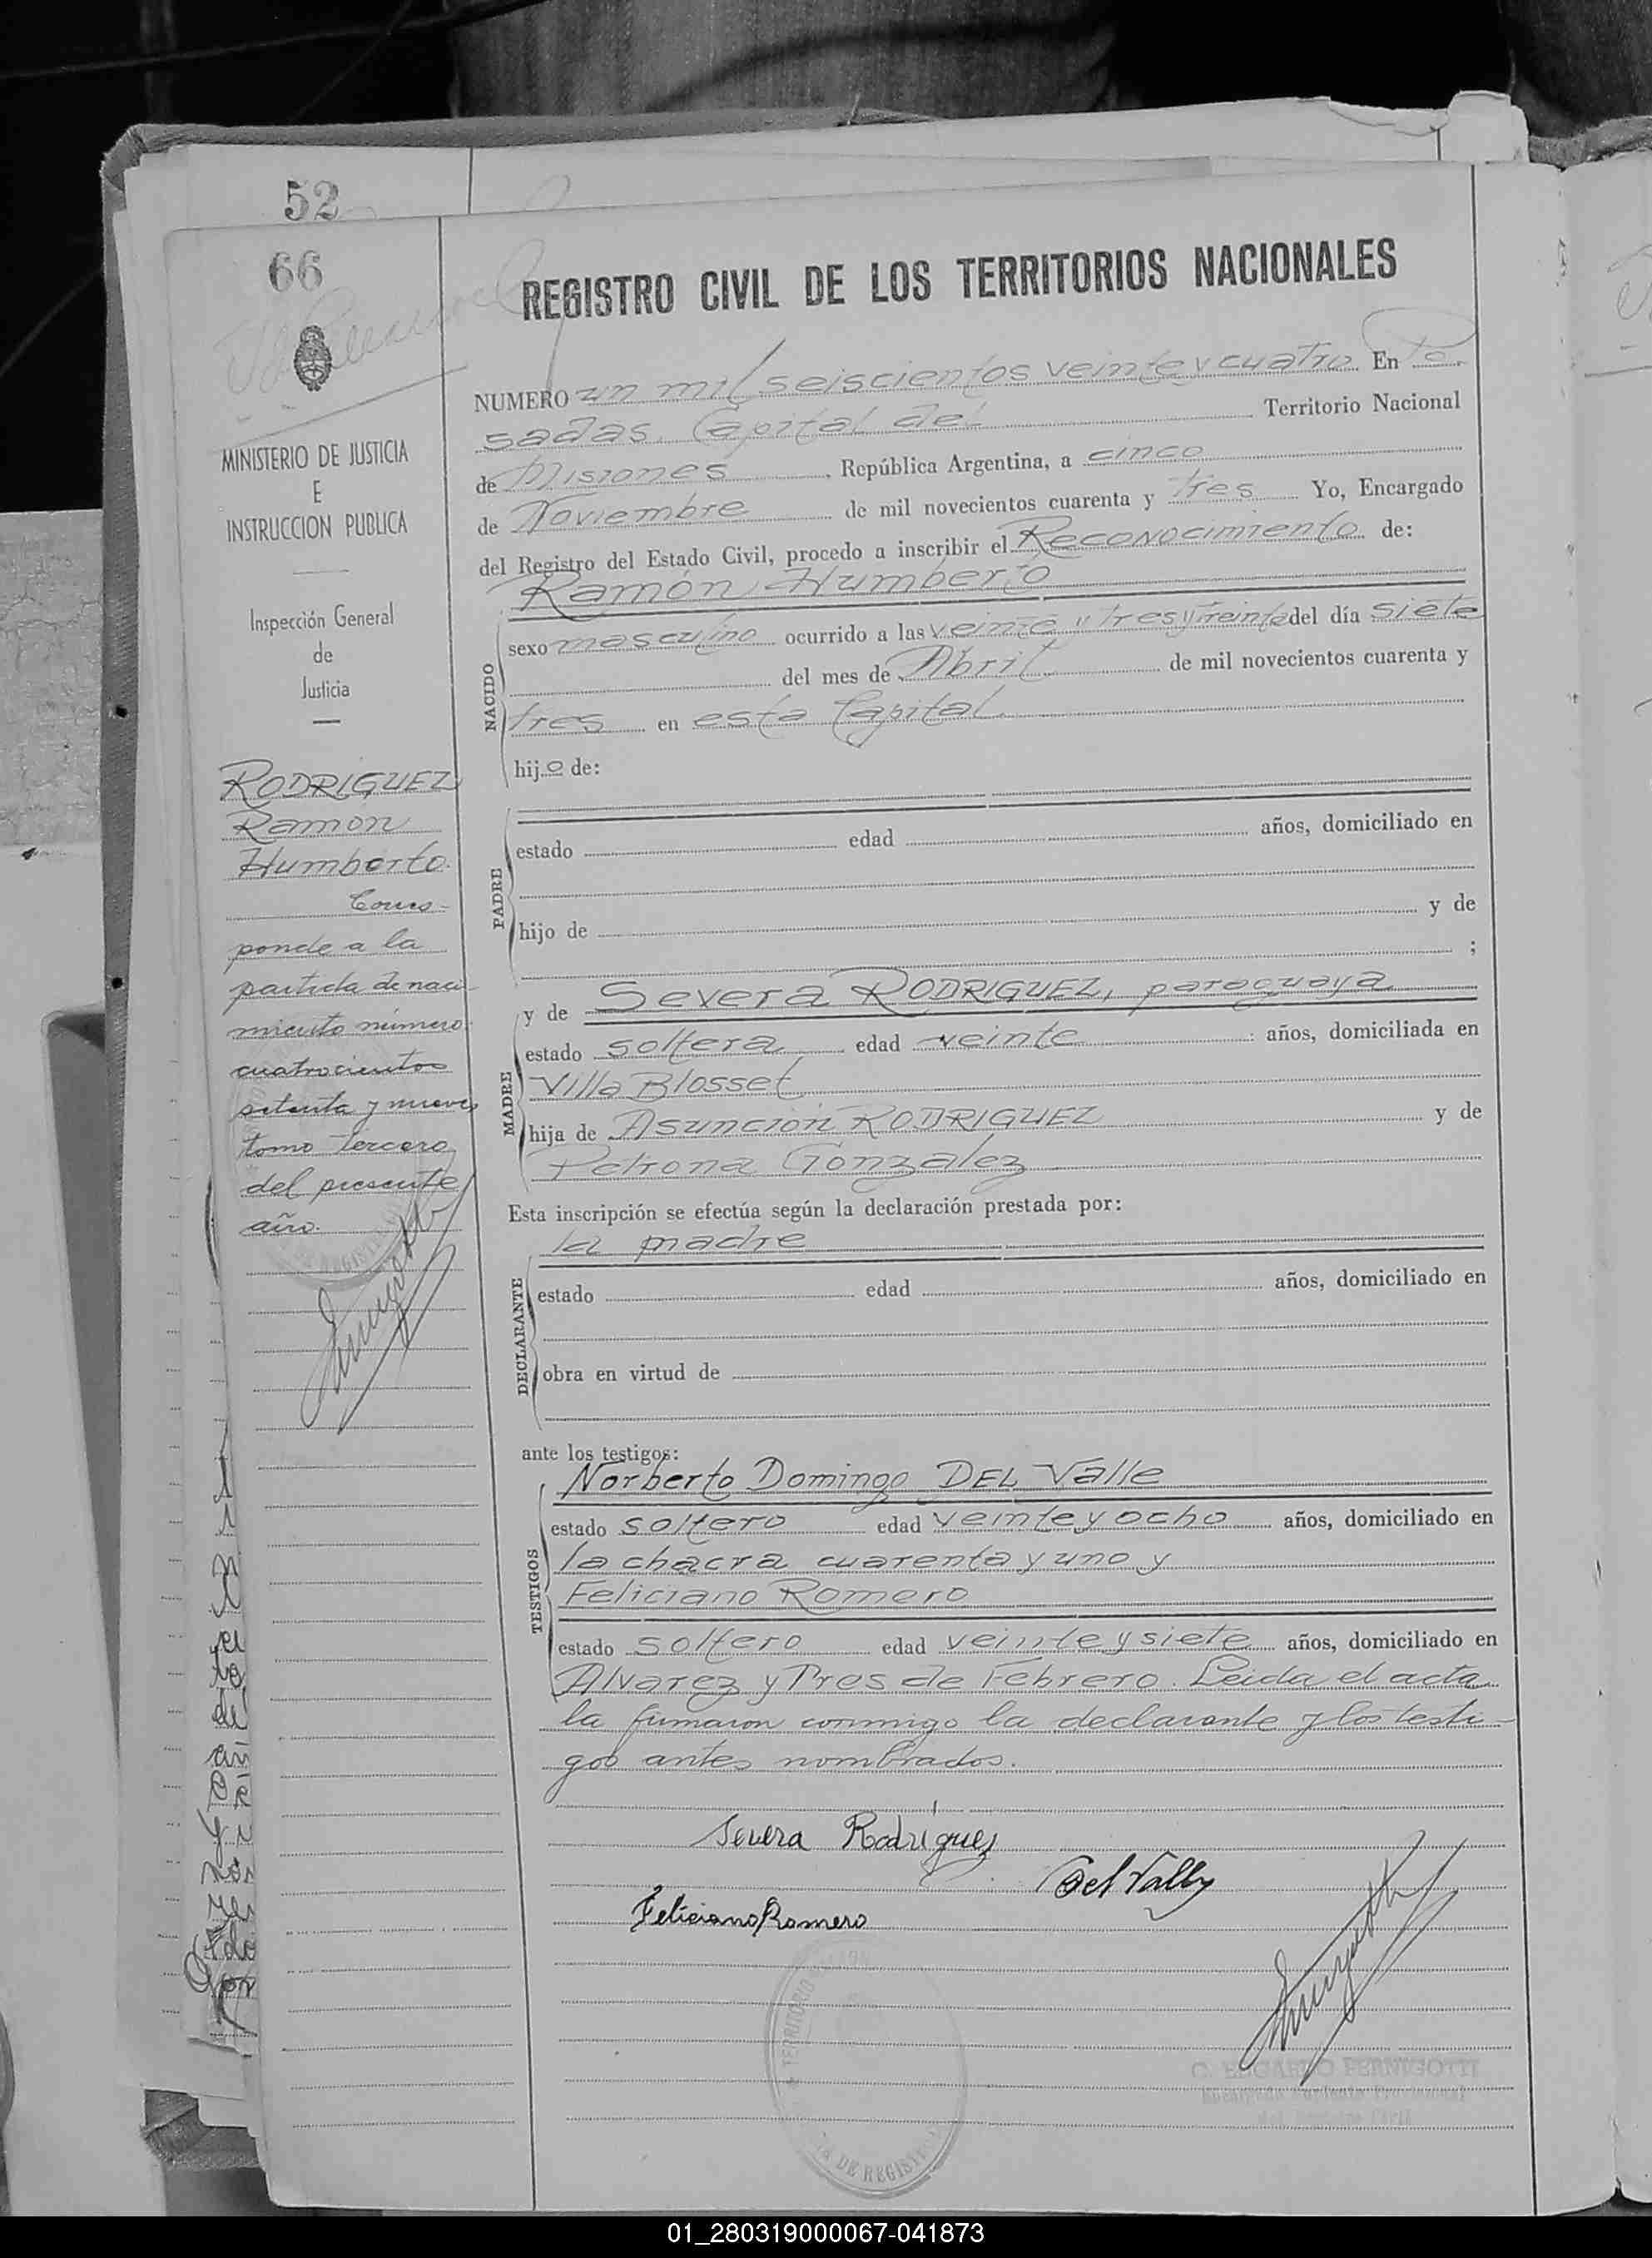 52
66
MINISTERIO DE JUSTICIA
E
INSTRUCCION PUBLICA
Inspección General
de
Justicia
RODRIGUEZ
Ramon
Humberto.
Corres-
ponde a la
partida de naci-
miento número
cuatrocientos
setenta y nueve
tomo tercero
del presente
año.
REGISTRO CIVIL DE LOS TERRITORIOS NACIONALES
NUMERO un mil seiscientos veinte y cuatro En Po-
sadas, Capital del Territorio Nacional
de Misiones, República Argentina, a cinco
de Noviembre de mil novecientos cuarenta y tres Yo, Encargado
del Registro del Estado Civil, procedo a inscribir el Reconocimiento de:
Ramón Humberto
NACIDO
sexo masculino ocurrido a las veinte y tres y treinta del día siete
del mes de Abril de mil novecientos cuarenta y
tres en esta Capital
hijo de:
PADRE
estado edad años, domiciliado en
hijo de y de
;
MADRE
y de Severa RODRIGUEZ, paraguaya
estado soltera edad veinte años, domiciliada en
Villa Blosset
hija de Asunción RODRIGUEZ y de
Petrona Gonzalez
Esta inscripción se efectúa según la declaración prestada por:
la madre
DECLARANTE
estado edad años, domiciliado en
obra en virtud de
ante los testigos:
TESTIGOS
Norberto Domingo DEL Valle
estado soltero edad veinte y ocho años, domiciliado en
la chacra cuarenta y uno y
Feliciano Romero
estado soltero edad veinte y siete años, domiciliado en
Alvarez y Tres de Febrero. Leida el acta
la firmaron conmigo la declarante y los testi-
gos antes nombrados.
Severa Rodriguez
Del Valle
Feliciano Romero
TERRITORIO
DE REGISTRO
C. EDGARDO PERNIGOTTI
01_280319000067-041873